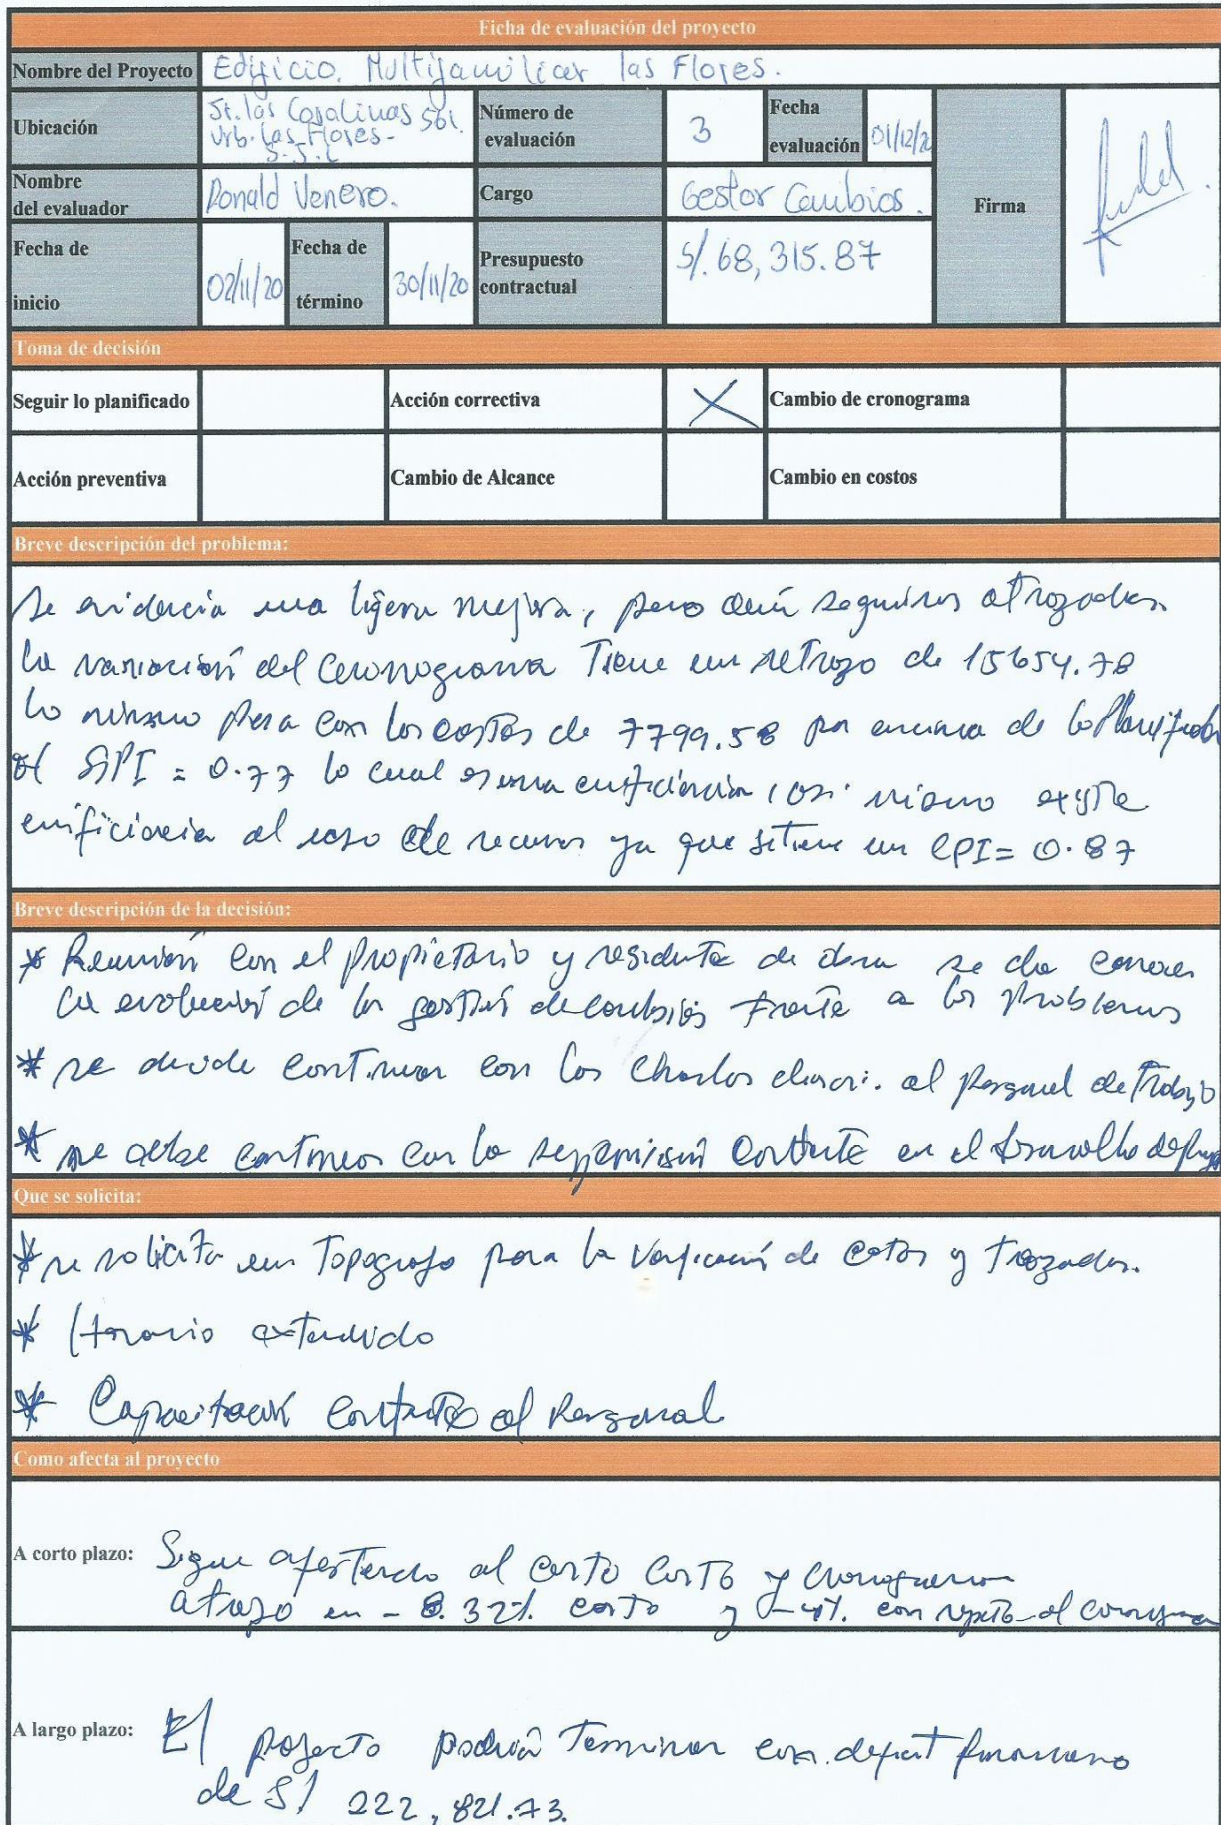 Ficha de evaluación del proyecto
Nombre del Proyecto Edificio. Multifamiliar las Flores.
Ubicación Jr. las Coralinas 561. Número de evaluación 3 Fecha evaluación 01/12/20
Urb. las Flores -
S.J.L
Nombre del evaluador Ronald Venero. Cargo Gestor Cambios. Firma
Fecha de inicio 02/11/20 Fecha de término 30/11/20 Presupuesto contractual S/. 68,315.87
Toma de decisión
Seguir lo planificado Acción correctiva X Cambio de cronograma
Acción preventiva Cambio de Alcance Cambio en costos
Breve descripción del problema:
Se evidencia una ligera mejora, pero aún seguimos atrazados
la variación del Cronograma Tiene un retrazo de 15654.78
lo mismo pasa con los costos de 7799.58 por encima de lo Planificado
el SPI = 0.77 lo cual es una eni­ficiencia, asi mismo existe
enificiencia al uso de recursos ya que se tiene un CPI = 0.87
Breve descripción de la decisión:
* Reunión con el propietario y residente de obra se da conocer
la evolución de la gestión de cambios frente a los problemas
* se decide continuar con las charlas al personal de trabajo
* se debe continuar con la supervisión constante en el desarrollo
Que se solicita:
* se solicita un Topografo para la verificación de cotas y trazados.
* Horario extendido
* Capacitación constante al Personal
Como afecta al proyecto
A corto plazo: Sigue afectando al costo y cronograma
atrazo en - 8.32% costo y -4%. con respecto al cronograma
A largo plazo: El proyecto podría Terminar con deficit financiero
de S/ 222,821.73.